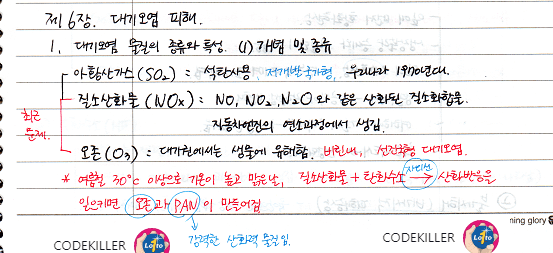 제 6장. 대기오염 피해.
1. 대기오염 물질의 종류와 특성. (1) 개념 및 종류
아황산가스(SO₂) : 석탄사용. 저개발국가형, 우리나라 1970년대.
질소산화물(NOx) : NO, NO₂, N₂O 와 같은 산화된 질소화합물.
자동차엔진의 연소과정에서 생김.
최근 문제.
오존(O₃) : 대기권에서는 생물에 유해함. 비린내, 선진국형 대기오염.
* 여름철 30°c 이상으로 기온이 높고 맑은날, 질소산화물 + 탄화수소 자외선 → 산화반응을
일으키면 오존과 PAN이 만들어짐
강력한 산화력 물질임.
ning glory
CODEKILLER Lotto CODEKILLER Lotto